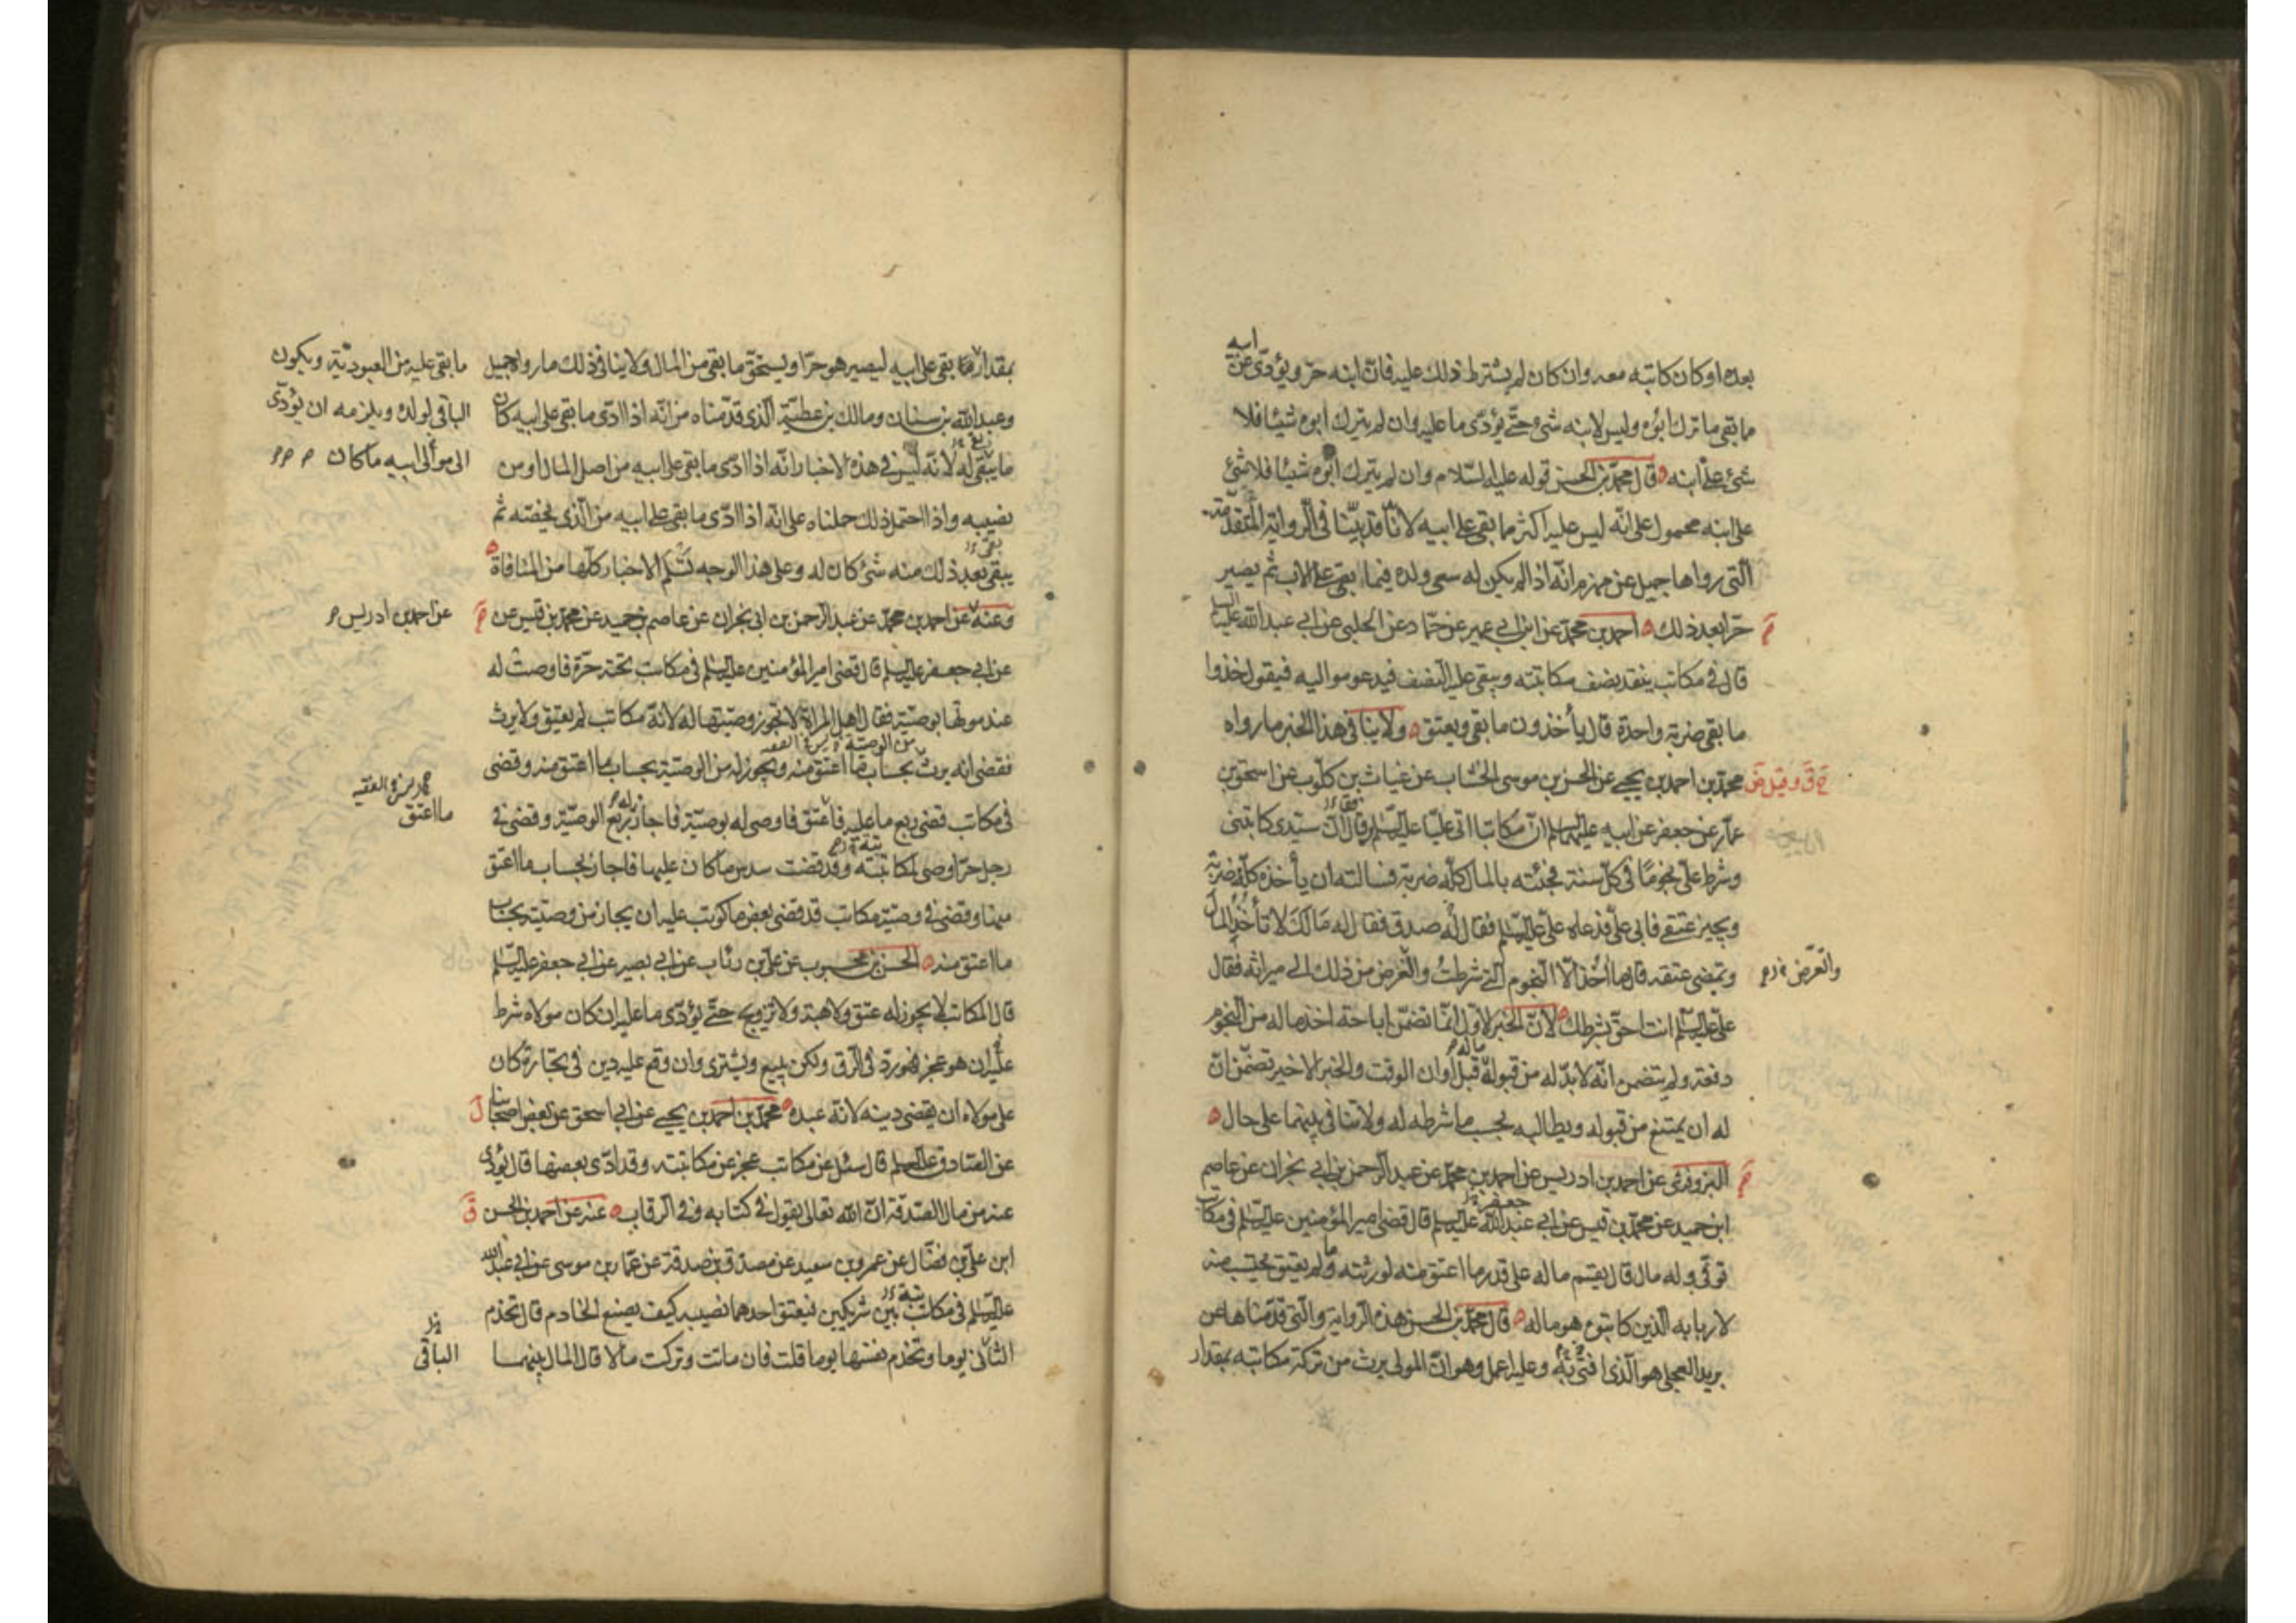 بعده او كان كاتبه معه وان كان لم يشترط ذلك عليه فانّ ابنه حرّ ويؤدّى عن
ابيه
ما بقى ما ترك ابوه وليس لابنه شىء حتّى يؤدّى ما عليه وان لم يترك ابوه شيئا فلا
شئ على ابنه قال محمّد بن الحسن قوله عليه السّلام وان لم يترك ابوه شيئا فلا شئ
على ابنه محمول على انّه ليس عليه اكثر ما بقى على ابيه لانّا قد بيّنّا فى الرواية المتقدّمة
الّتى رواها جميل عن مهزم انّه اذا لم يكن له سعى ولده فيما بقى على الاب ثم يصير
حرّا بعد ذلك احمد بن محمّد عن ابن ابى عمير عن حمّاد عن الحلبى عن ابى عبد الله عليه السلم
قال فى مكاتب ينقد نصف مكاتبته ويبقى عليه النصف فيدعو مواليه فيقول خذوا
ما بقى ضربة واحدة قال يأخذون ما بقى ويعتق ولا ينافى هذا الخبر ما رواه
محمّد بن احمد بن يحيى عن الحسن بن موسى الخشاب عن غياث بن كلّوب عن اسحق بن
عمّار عن جعفر عن ابيه عليهما السلم انّ مكاتبا اتى عليّا عليه السلم وقال انّ سيّدى كاتبنى
وشرط علىّ نجومًا فى كلّ سنة فجئته بالمال كلّه ضربة فسالته ان يأخذه كلّه ضربة
ويجيز عتقى فابى علىّ فدعاه علىّ عليه السلم فقال له صدق فقال له مَا لَكَ لا تأخُذ المال
وتمضى عتقه قال ما آخُذ الّا النجوم الّتى شرطتُ واتعرض من ذلك الى ميراثه فقال
واتعرّض
علىّ عليه السّلم انت احقّ بشرطك لانّ الخبر الاول انّما تضمّن اباحة اخذ ما له من النجوم
دفعة ولم يتضمن انّه لا بدّ له من قبوله قبل اوان الوقت والخبر الاخير تضمّن انّ
ماله
له ان يمتنع من قبوله ويطالبه بحسب ما شرطه له ولا تنافى بينهما على حال
البزوفرى عن احمد بن ادريس عن احمد بن محمّد عن عبد الرحمن بن ابى نجران عن عاصم
ابن حميد عن محمّد بن قيس عن ابى عبد الله عليه السلم قال قضى امير المؤمنين عليه السّلم فى مكاتب
جعفر
توفّى وله مال قال يقسم ماله على قدر ما اعتق منه لورثته وما لم يعتق يحتسب منه
لاربابه الّذين كاتبوه هو ماله قال محمّد بن الحسن هذه الرواية والّتى قدّمناها عن
بريد العجلى هو الّذى افتى به وعليه اعمل وهو انّ المولى يرث من تركة مكاتبه بمقدار
بمقدار ما بقى على ابيه ليصير هو حرّا ويستحقّ ما بقى من المال ولا ينافى ذلك ما رواه جميل
وعبد الله بن سنان ومالك بن عطيّة الّذى قدّمناه من انّه اذا ادّى ما بقى على ابيه كان
ما يبقى له لانّه ليس فى هذه الاخبار انّه اذا ادّى ما بقى على ابيه من اصل المال او من
نصيبه واذا احتمل ذلك حملناه على انّه اذا ادّى ما بقى على ابيه من الّذى يخصّه ثم
يبقى بعد ذلك منه شئ كان له وعلى هذا الوجه تسلم الاخبار كلّها من المنافاة
ما بقى عليه من العبوديّة ويكون
الباقى لولده ويلزمه ان يؤدّى
الى موالى ابيه ما كان
وعنه عن احمد بن محمّد عن عبد الرحمن بن ابى نجران عن عاصم بن حميد عن محمّد بن قيس عن
عن احمد بن ادريس
عن ابى جعفر عليه السلم قال قضى امير المؤمنين عليه السلم فى مكاتب تحته حرّة فاوصت له
عند موتها بوصيّة فقال اهل المراة لا تجوز وصيّتها له لانّه مكاتب لم يعتق ولا يرث
فقضى انه يرث بحساب ما اعتق منه ويجوز له من الوصيّة بحساب ما اعتق منه وقضى
فى مكاتب قضى ربع ما عليه فاعتق فاوصى له بوصيّة فاجاز ربع الوصيّة وقضى فى
ما اعتق
رجل حرّ اوصى لمكاتبته وقد قضت سدس ما كان عليها فاجاز بحساب ما اعتق
منها وقضى فى وصيّة مكاتب قد قضى بعض ما كوتب عليه ان يجاز من وصيّته بحساب
ما اعتق منه الحسن بن محبوب عن علىّ بن رئاب عن ابى بصير عن ابى جعفر عليه السّلم
قال المكاتب لا يجوز له عتق ولا هبة ولا تزويج حتّى يؤدّى ما عليه ان كان مولاه شرط
عليه ان هو عجز فهو ردّ فى الرقّ ولكن يبيع ويشترى وان وقع عليه دين فى تجارة كان
على مولاه ان يقضى دينه لانّه عبده محمّد بن احمد بن يحيى عن ابى اسحق عن بعض اصحابنا
عن الصادق عليه السلم قال سئل عن مكاتب عجز عن مكاتبته وقد ادّى بعضها قال يؤدّى
عنه من مال الصدقة انّ الله تعالى يقول فى كتابه وفى الرقاب عنه عن احمد بن الحسن
ابن علىّ بن فضّال عن عمرو بن سعيد عن مصدّق بن صدقة عن عمّار بن موسى عن ابى عبد الله
عليه السّلم فى مكاتبة بين شريكين فيعتق احدهما نصيبه كيف يصنع الخادم قال تخدم
الثانى يوما وتخدم نفسها يوما قلت فان ماتت وتركت مالا قال المال بينهما
الباقى